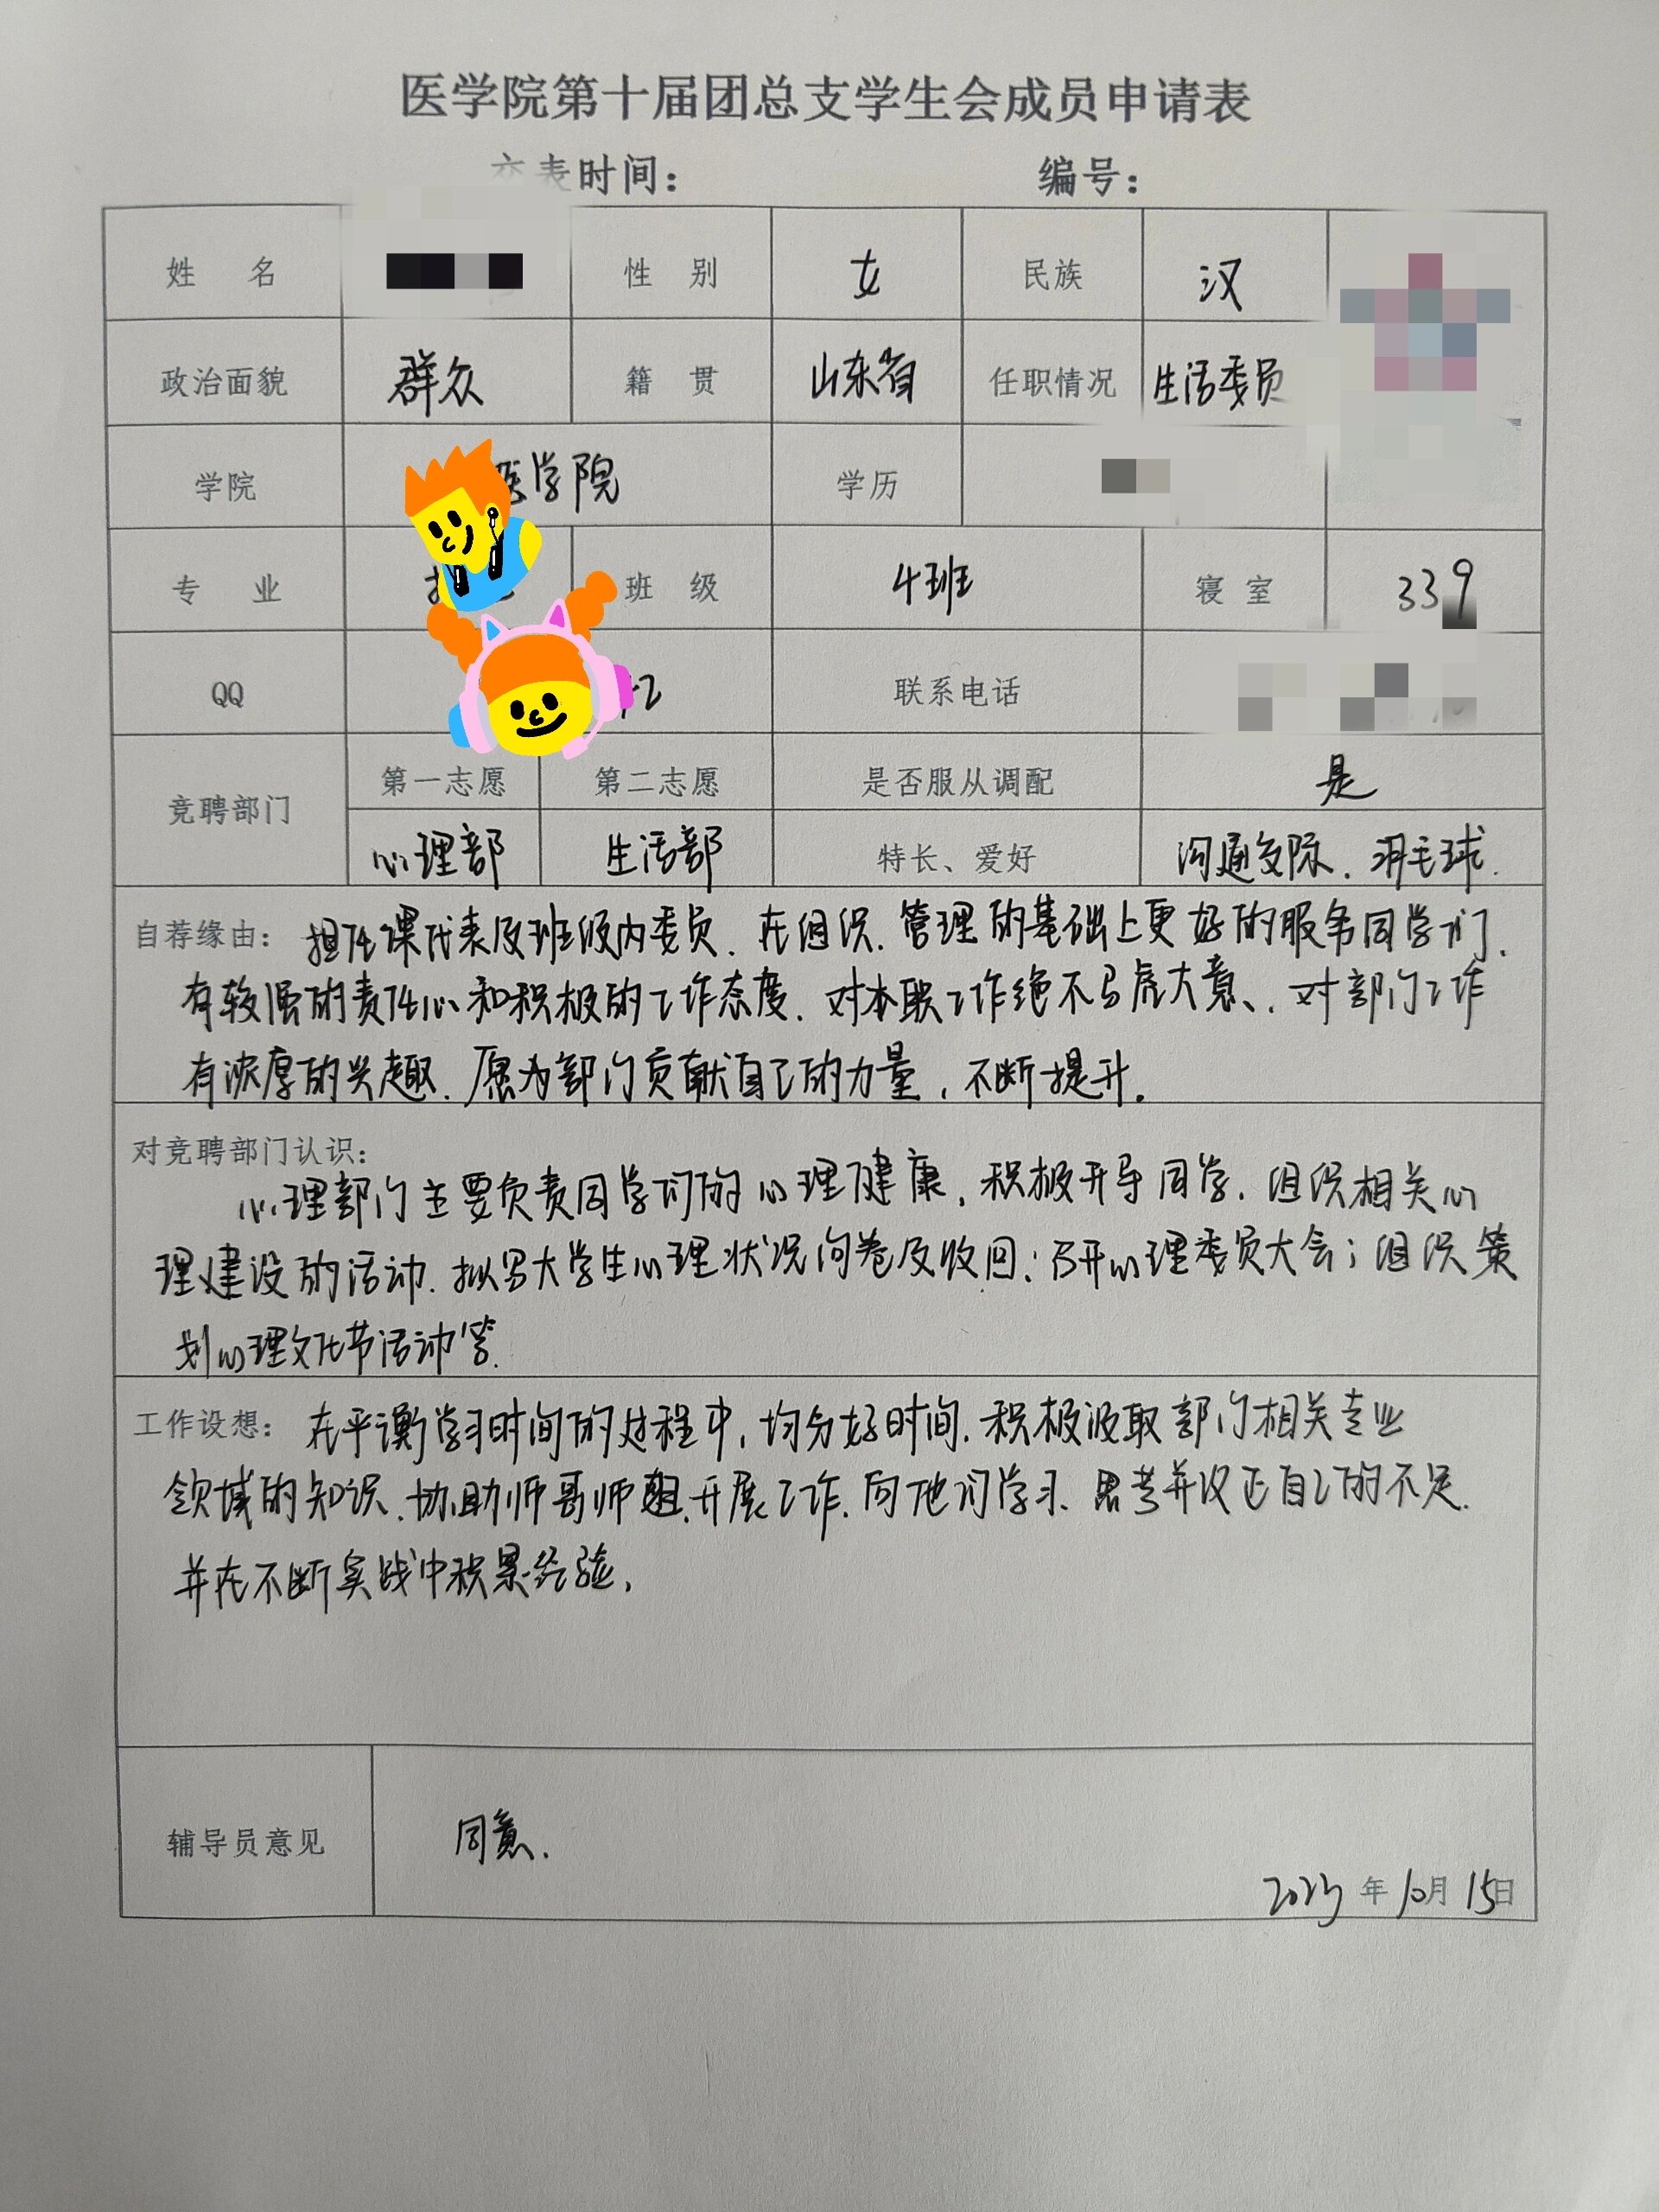 医学院第十届团总支学生会成员申请表
交表时间： 编号：
姓 名 性 别 女 民族 汉
政治面貌 群众 籍 贯 山东省 任职情况 生活委员
学院 医学院 学历
专 业 班 级 4班 寝 室 339
QQ 2 联系电话
竞聘部门 第一志愿 第二志愿 是否服从调配 是
心理部 生活部 特长、爱好 沟通交际、羽毛球.
自荐缘由： 担任课代表及班级内委员、在组织、管理的基础上更好的服务同学们、
有较强的责任心和积极的工作态度、对本职工作绝不马虎大意、、对部门工作
有浓厚的兴趣、愿为部门贡献自己的力量，不断提升。
对竞聘部门认识：
心理部门主要负责同学们的心理健康，积极开导同学、组织相关心
理建设的活动、拟写大学生心理状况问卷及收回；召开心理委员大会；组织策
划心理文化节活动等.
工作设想： 在平衡学习时间的过程中，均分好时间、积极汲取部门相关专业
领域的知识、协助师哥师姐开展工作、向他们学习、思考并改正自己的不足、
并在不断实践中积累经验，
辅导员意见 同意.
2023年10月15日